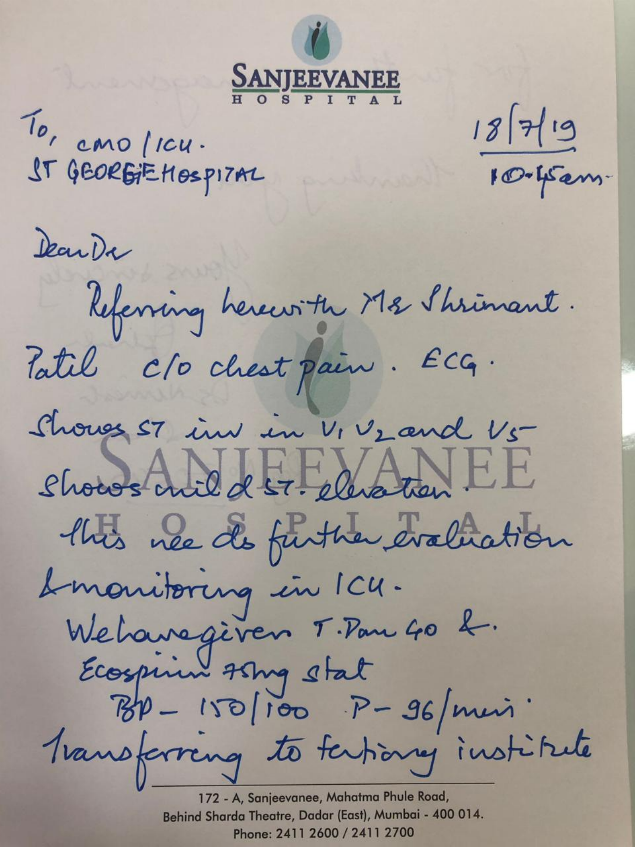 SANJEEVANEE
HOSPITAL
To,
CMO / ICU.
ST GEORGE HOSPITAL
18/7/19
10.45am.
Dear Dr
Referring herewith Mr Shrimant.
Patil c/o chest pain. ECG.
Shows ST inv in V1 V2 and V5
Shows mild ST. elevation.
This needs further evaluation
& monitoring in ICU.
We have given T. 40 &.
Ecosprin 75mg stat
BP - 150/100 P - 96/min.
Transferring to tertiary institute
SANJEEVANEE
HOSPITAL
172 - A, Sanjeevanee, Mahatma Phule Road,
Behind Sharda Theatre, Dadar (East), Mumbai - 400 014.
Phone: 2411 2600 / 2411 2700